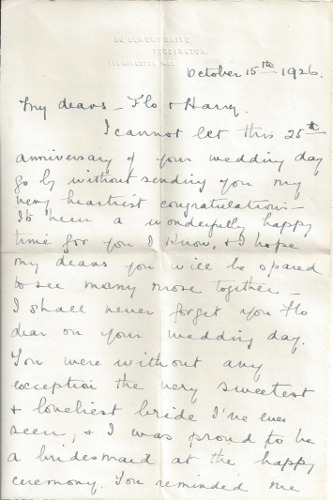 TEDDINGTON.
October 15th 1926.
My dears - Flo & Harry.
I cannot let this 25th
anniversary of your wedding day
go by without sending you my
very heartiest congratulations -
Its been a wonderfully happy
time for you I know, & I hope
my dears you will be spared
to see many more together -
I shall never forget you Flo
dear on your wedding day.
You were without any
exception the very sweetest
& loveliest bride I've ever
seen, & I was proud to be
a bridesmaid at the happy
ceremony. You reminded me